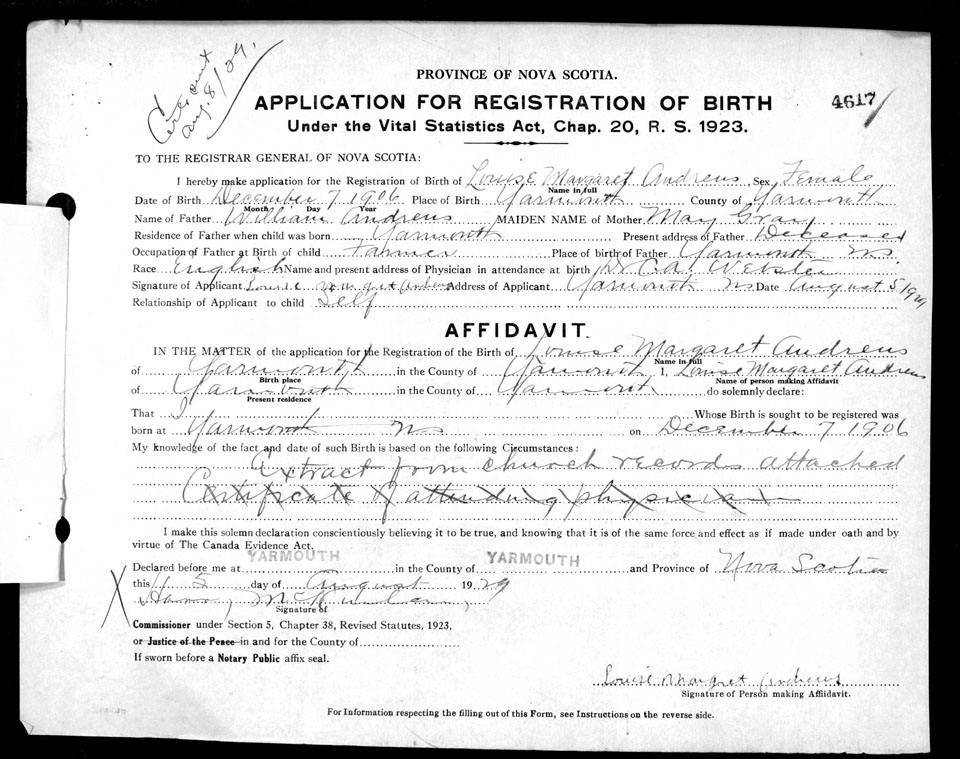 Cert sent
Aug. 8/29.
PROVINCE OF NOVA SCOTIA.
APPLICATION FOR REGISTRATION OF BIRTH
4617
Under the Vital Statistics Act, Chap. 20, R. S. 1923.
TO THE REGISTRAR GENERAL OF NOVA SCOTIA:
I hereby make application for the Registration of Birth of Louise Margaret Andrews Sex Female
Name in full
Date of Birth December 7 1906 Place of Birth Yarmouth County of Yarmouth
Month Day Year
Name of Father William Andrews MAIDEN NAME of Mother Mary Gray
Residence of Father when child was born Yarmouth Present address of Father Deceased
Occupation of Father at Birth of child Farmer Place of birth of Father Yarmouth NS
Race English Name and present address of Physician in attendance at birth Dr C.A. Webster
Signature of Applicant Louise Margret Andrews Address of Applicant Yarmouth NS Date August 5 1929
Relationship of Applicant to child Self
AFFIDAVIT.
IN THE MATTER of the application for the Registration of the Birth of Louise Margaret Andrews
Name in full
of Yarmouth in the County of Yarmouth I, Louise Margaret Andrews
Birth place Name of person making Affidavit
of Yarmouth in the County of Yarmouth do solemnly declare:
Present residence
That I Whose Birth is sought to be registered was
born at Yarmouth NS on December 7 1906
My knowledge of the fact and date of such Birth is based on the following Circumstances:
Extract from church records attached
Certificate of attending physician
I make this solemn declaration conscientiously believing it to be true, and knowing that it is of the same force and effect as if made under oath and by
virtue of The Canada Evidence Act.
Declared before me at YARMOUTH in the County of YARMOUTH and Province of Nova Scotia
this 5 day of August 1929
Signature of
Commissioner under Section 5, Chapter 38, Revised Statutes, 1923,
or Justice of the Peace in and for the County of
If sworn before a Notary Public affix seal.
Louise Margret Andrews
Signature of Person making Affidavit.
For Information respecting the filling out of this Form, see Instructions on the reverse side.